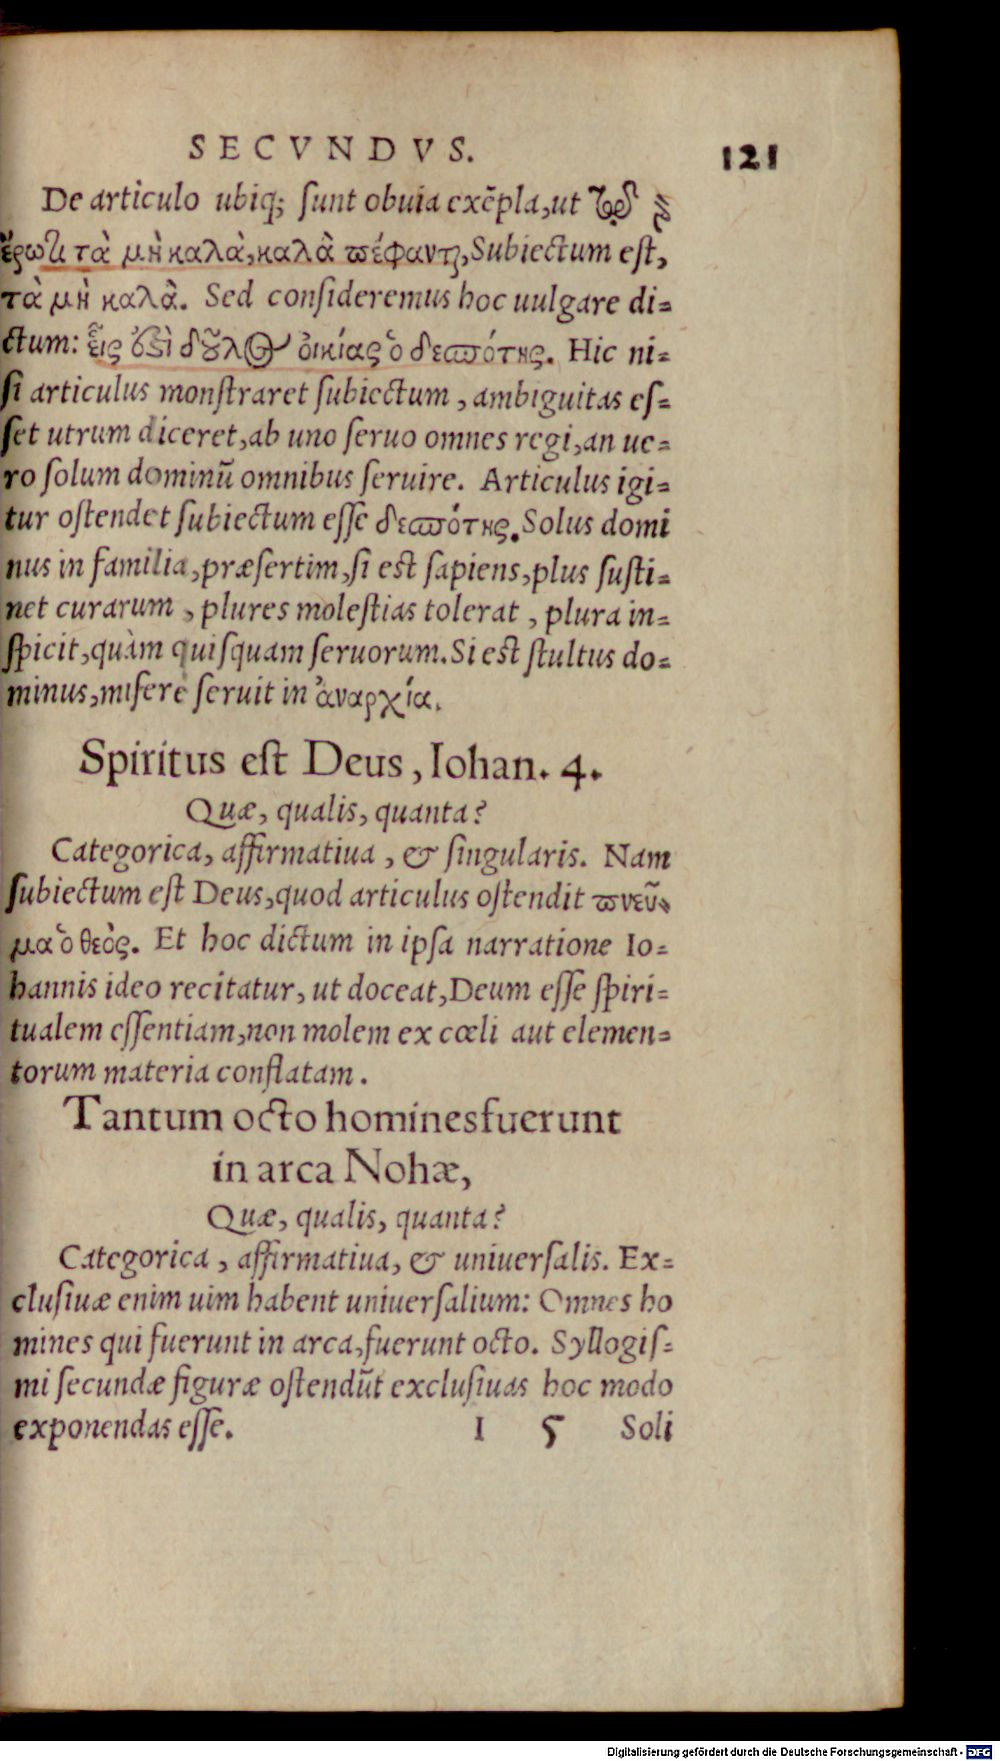 SECVNDVS. 121
De articulo ubiq; sunt obuia exẽpla, ut
ἔρωτι τὰ μὴ καλὰ, καλὰ πέφανται, Subiectum est,
τὰ μὴ καλὰ. Sed consideremus hoc uulgare di-
ctum: εἷς ἐστὶ δοῦλος οἰκίας ὁ δεσπότης. Hic ni-
si articulus monstraret subiectum, ambiguitas es-
set utrum diceret, ab uno seruo omnes regi, an ue-
ro solum dominũ omnibus seruire. Articulus igi-
tur ostendet subiectum esse δεσπότης. Solus domi
nus in familia, præsertim, si est sapiens, plus susti-
net curarum, plures molestias tolerat, plura in-
spicit, quàm quisquam seruorum. Si est stultus do-
minus, miserè seruit in ἀναρχίᾳ.
Spiritus est Deus, Iohan. 4.
Quæ, qualis, quanta?
Categorica, affirmatiua, & singularis. Nam
subiectum est Deus, quod articulus ostendit πνεῦ-
μα ὁ θεὸς. Et hoc dictum in ipsa narratione Io-
hannis ideo recitatur, ut doceat, Deum esse spiri-
tualem essentiam, non molem ex cœli aut elemen-
torum materia conflatam.
Tantum octo homines fuerunt
in arca Nohæ,
Quæ, qualis, quanta?
Categorica, affirmatiua, & uniuersalis. Ex-
clusiuæ enim uim habent uniuersalium: Omnes ho
mines qui fuerunt in arca, fuerunt octo. Syllogis-
mi secundæ figuræ ostendũt exclusiuas hoc modo
exponendas esse. I 5 Soli
Digitalisierung gefördert durch die Deutsche Forschungsgemeinschaft - DFG